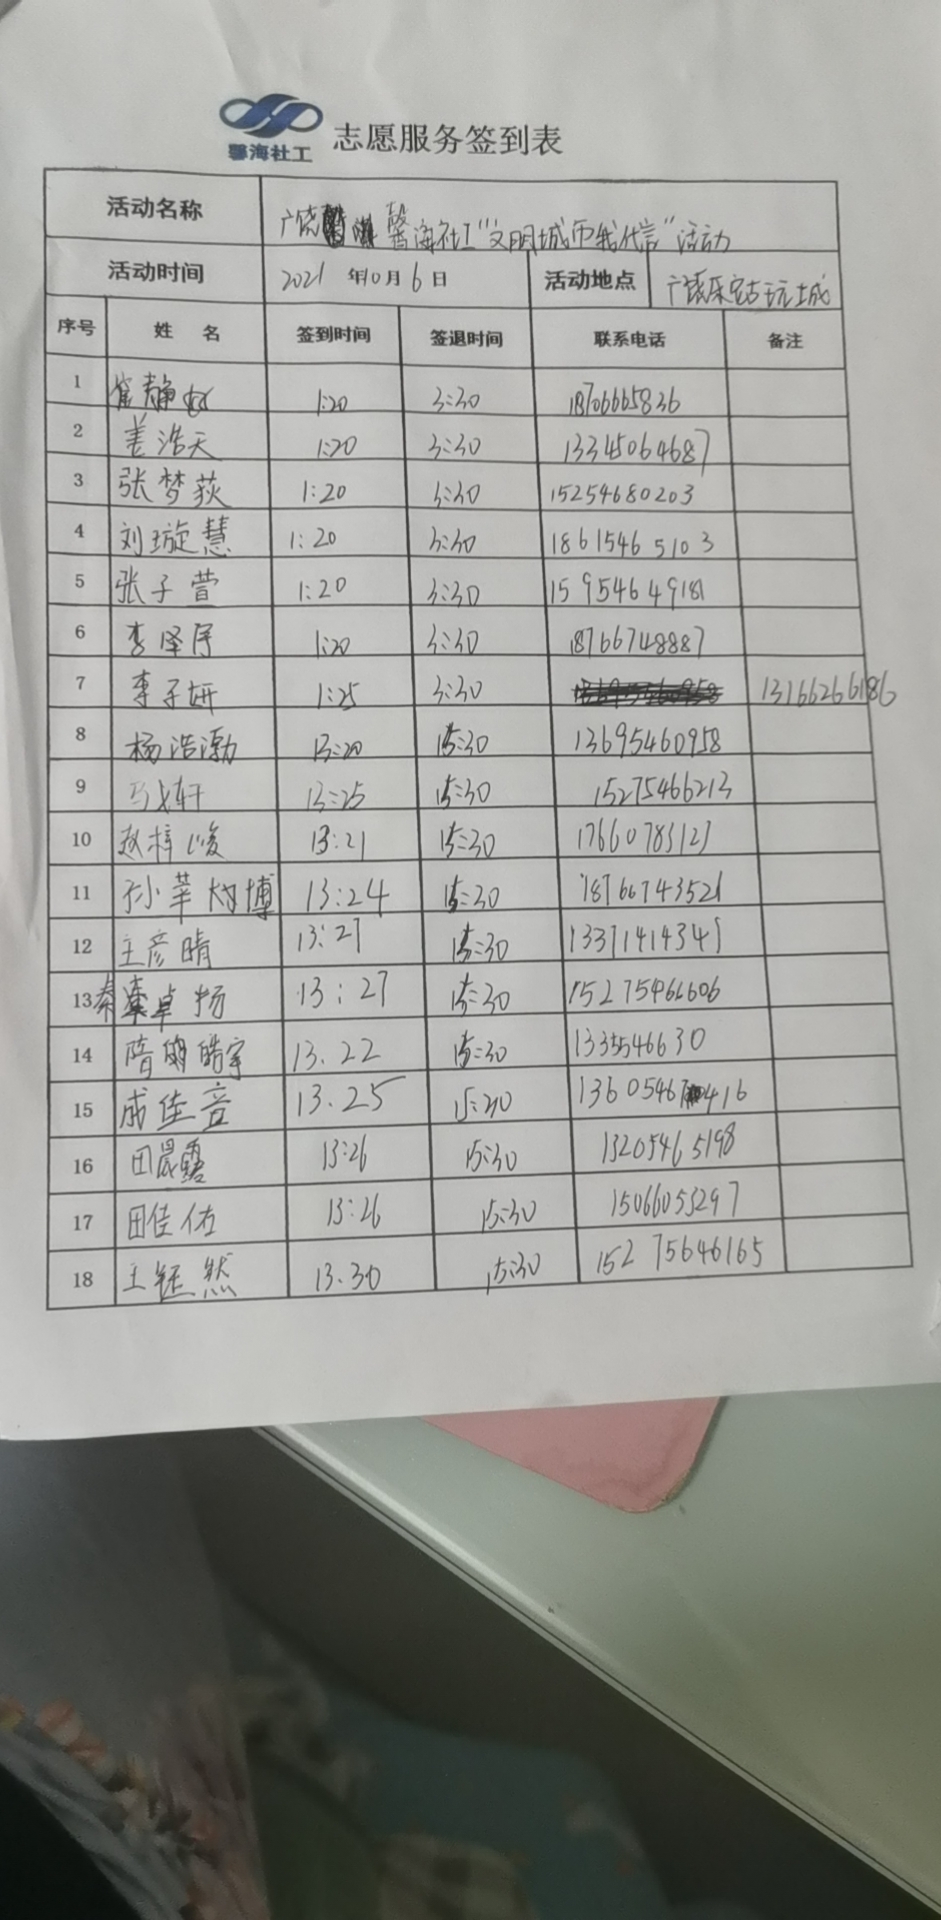 馨海社工 志愿服务签到表
活动名称 广饶 馨海社工“文明城市我代言”活动
活动时间 2021 年10月6日 活动地点 广饶乐安古玩城
序号 姓 名 签到时间 签退时间 联系电话 备注
1 崔静 1:20 3:30 18706665836
2 姜浩天 1:20 3:30 13345064687
3 张梦荻 1:20 3:30 15254680203
4 刘璇慧 1:20 3:30 18615465103
5 张子萱 1:20 3:30 15954649181
6 李泽 1:20 3:30 18766748887
7 李子妍 1:25 3:30 13166266186
8 杨浩渤 13:20 15:30 13695460958
9 轩 13:25 15:30 15275466213
10 赵梓峻 13:21 15:30 17660783123
11 孙莘 博 13:24 15:30 18766743521
12 王彦晴 13:27 15:30 13371414341
13 秦卓扬 13:27 15:30 15275466606
14 隋皓宇 13.22 15:30 1335546630
15 成佳音 13.25 15:30 416
16 田晨露 13:26 15:30 13205465198
17 田佳佑 13:26 15:30 15066053297
18 王钰然 13.30 15:30 15275646165